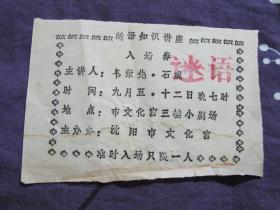 谜语知识讲座
入场券
谜语
主讲人：韦荣先·石成
时　间：九月五·十二日晚七时
地　点：市文化宫三楼小剧场
主办：沈阳市文化宫
准时入场只限一人